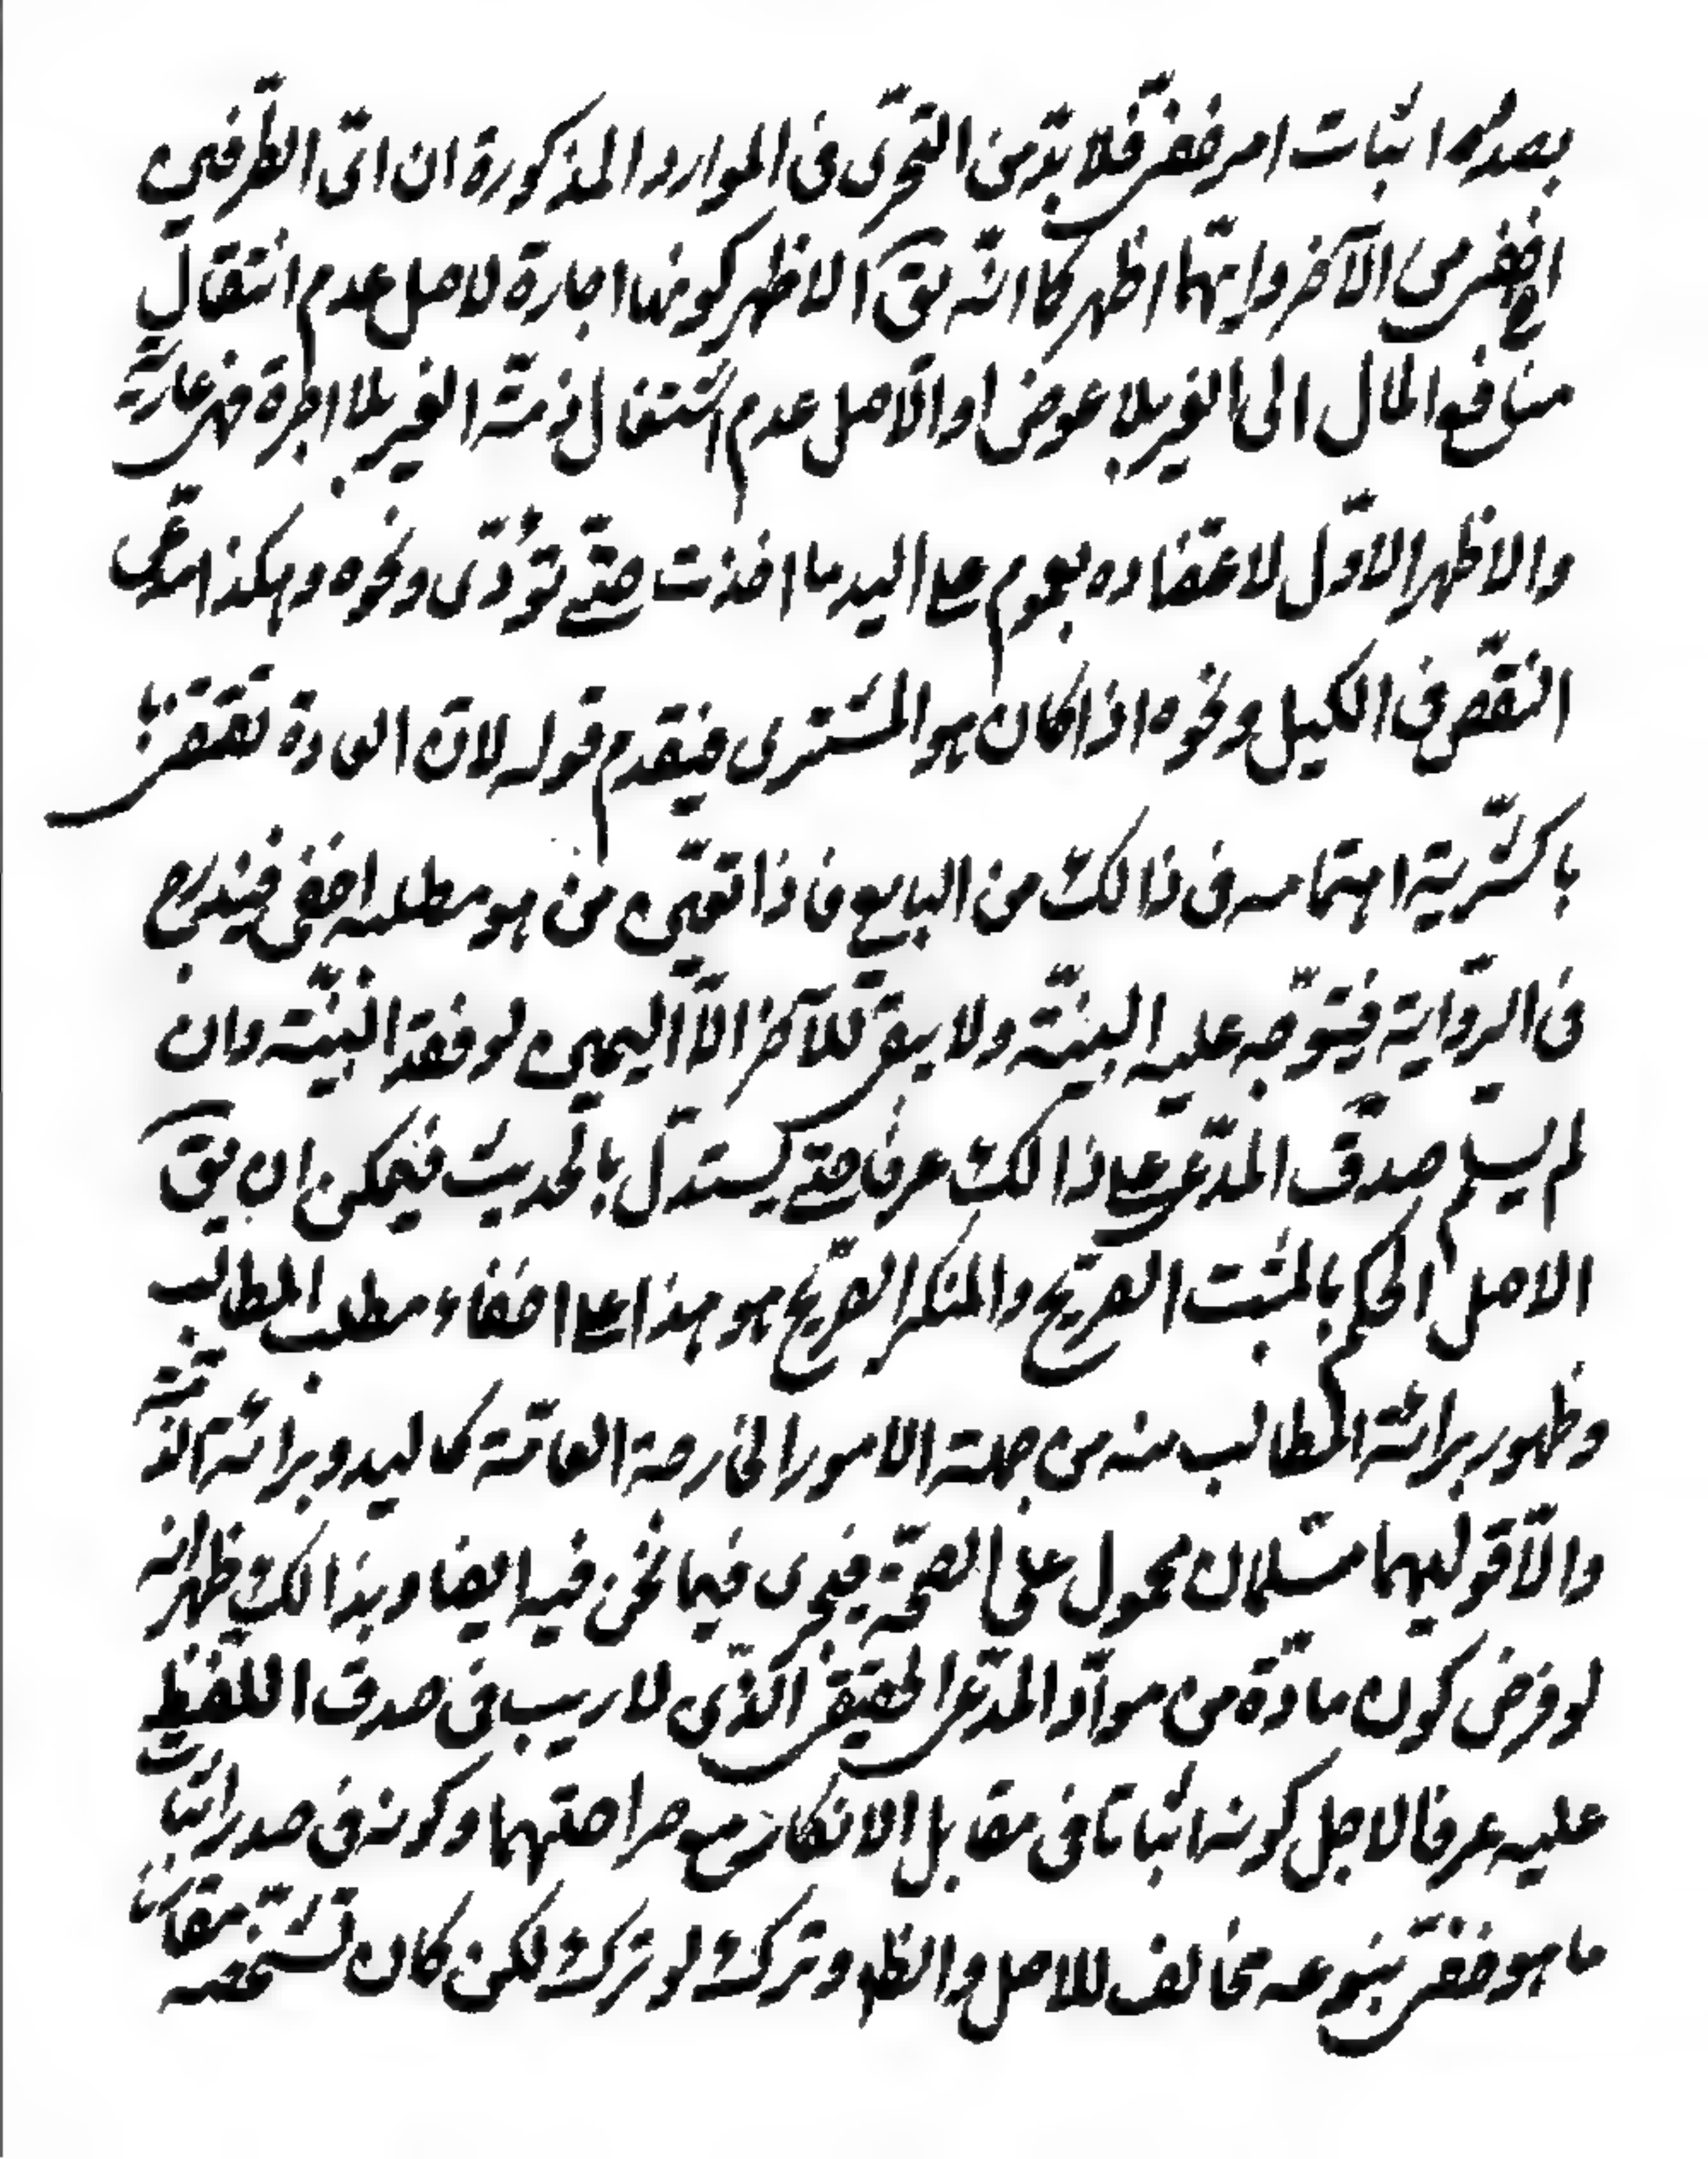 بصدد اثبات امر خفىّ فلا بدّ من التحرّى فى الموارد المذكورة ان اىّ الطّرفين
اخفى من الآخر وايّهما اظهر كما انّه يق الاظهر كونها اجارة لاصل عدم انتقال
منافع المال الى الغير بلا عوض او الاصل عدم اشتغال ذمّة الغير بالاجرة فهى عارية
والاظهر الاوّل لاعتضاده بعموم على اليد ما اخذت حتّى تؤدّى ونحوه وهكذا مدّعى
النّقص فى الكيل ونحوه اذا كان هو المشترى فيقدم قوله لانّ العادة تقتضى
باكثريّة اهتمامه فى ذالك من البايع فاذا تعيّن من هو مطلبه اخفى فيندرج
فى الرّواية فيتوجّه عليه البيّنة ولا يبقى للآخر الاّ اليمين لو فقد البيّنة وان
لم يسلم صدق المدّعى على ذالك عرفا حتّى يستدلّ بالحديث فيمكن ان يق
الاصل الحكم بالمثبت الصّريح والمنكر الصّريح هو هذا على اخفاء مطلب المطالب
وظهور برائة المطالب منه من جهة الامور الخارجة العامّة كاليد وبرائة الذّمّة
والاّ قوليهما مسلمان محمول على الصحّة فيجرى فيما نحن فيه ايضا وبذالك ظهر انه
لو فرض كون مادّة من موادّ المدّعى الحقيقى الّذى لا ريب فى صدق اللّفظ
عليه عرفا لاجل كونه اثباتا فى مقابل الانكار مع صراحتهما وكونه فى صدد اثبات
ما هو خفىّ بنوعه مخالف للاصل والظاهر وترك لو ترك لكن كان تشخّصه مقارنا